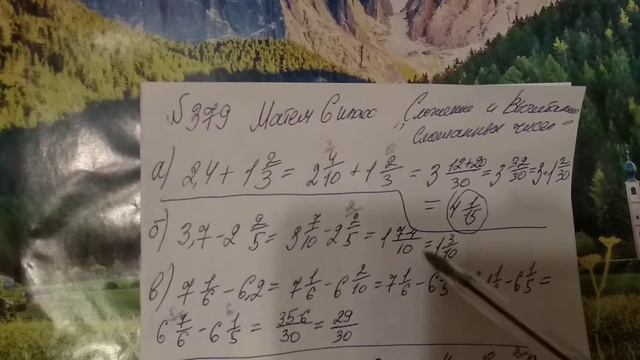 №379 Матем 6 класс „Сложение и Вычитание
смешанных чисел"
а) 2,4 + 1 2/3 = 2 4/10 + 1 2/3 = 3 (12+20)/30 = 3 32/30 = 3 + 1 2/30
= 4 1/15
б) 3,7 - 2 2/5 = 3 7/10 - 2 2/5 = 1 (7-4)/10 = 1 3/10
в) 7 1/6 - 6,2 = 7 1/6 - 6 2/10 = 7 1/6 - 6 1/5 - 6 1/5 =
6 7/6 - 6 1/5 = (35-6)/30 = 29/30